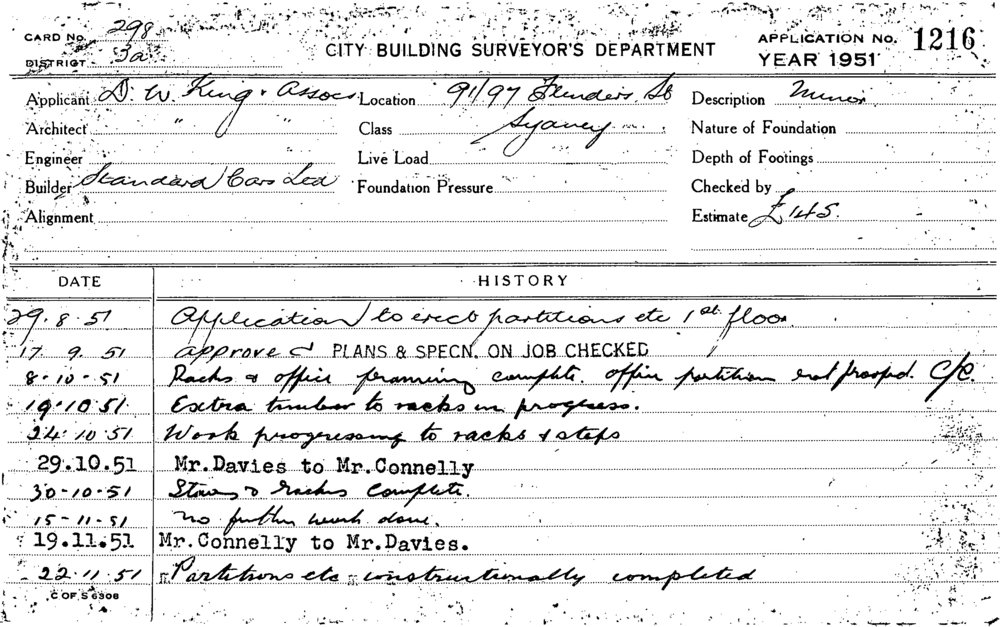 CARD No. 298
DISTRICT 3a
CITY BUILDING SURVEYOR'S DEPARTMENT
APPLICATION No. 1216
YEAR 1951
Applicant D. W. King & Assocs. Location 91/97 Flinders St Description Minor
Architect " " Class Sydney Nature of Foundation
Engineer Live Load Depth of Footings
Builder Standard Cars Ltd Foundation Pressure Checked by
Alignment Estimate £145.
DATE HISTORY
29.8.51 Application to erect partitions etc 1st floor
17.9.51 approved PLANS & SPECN. ON JOB CHECKED
8-10-51 Racks & office framing complete. office partition not proofed. C/C.
19.10.51 Extra timber to racks in progress.
24.10.51 Work progressing to racks & steps
29.10.51 Mr.Davies to Mr.Connelly
30-10-51 & racks complete.
15-11-51 no further work done.
19.11.51 Mr.Connelly to Mr.Davies.
22.11.51 Partitions etc constructionally completed
C OF S 6308